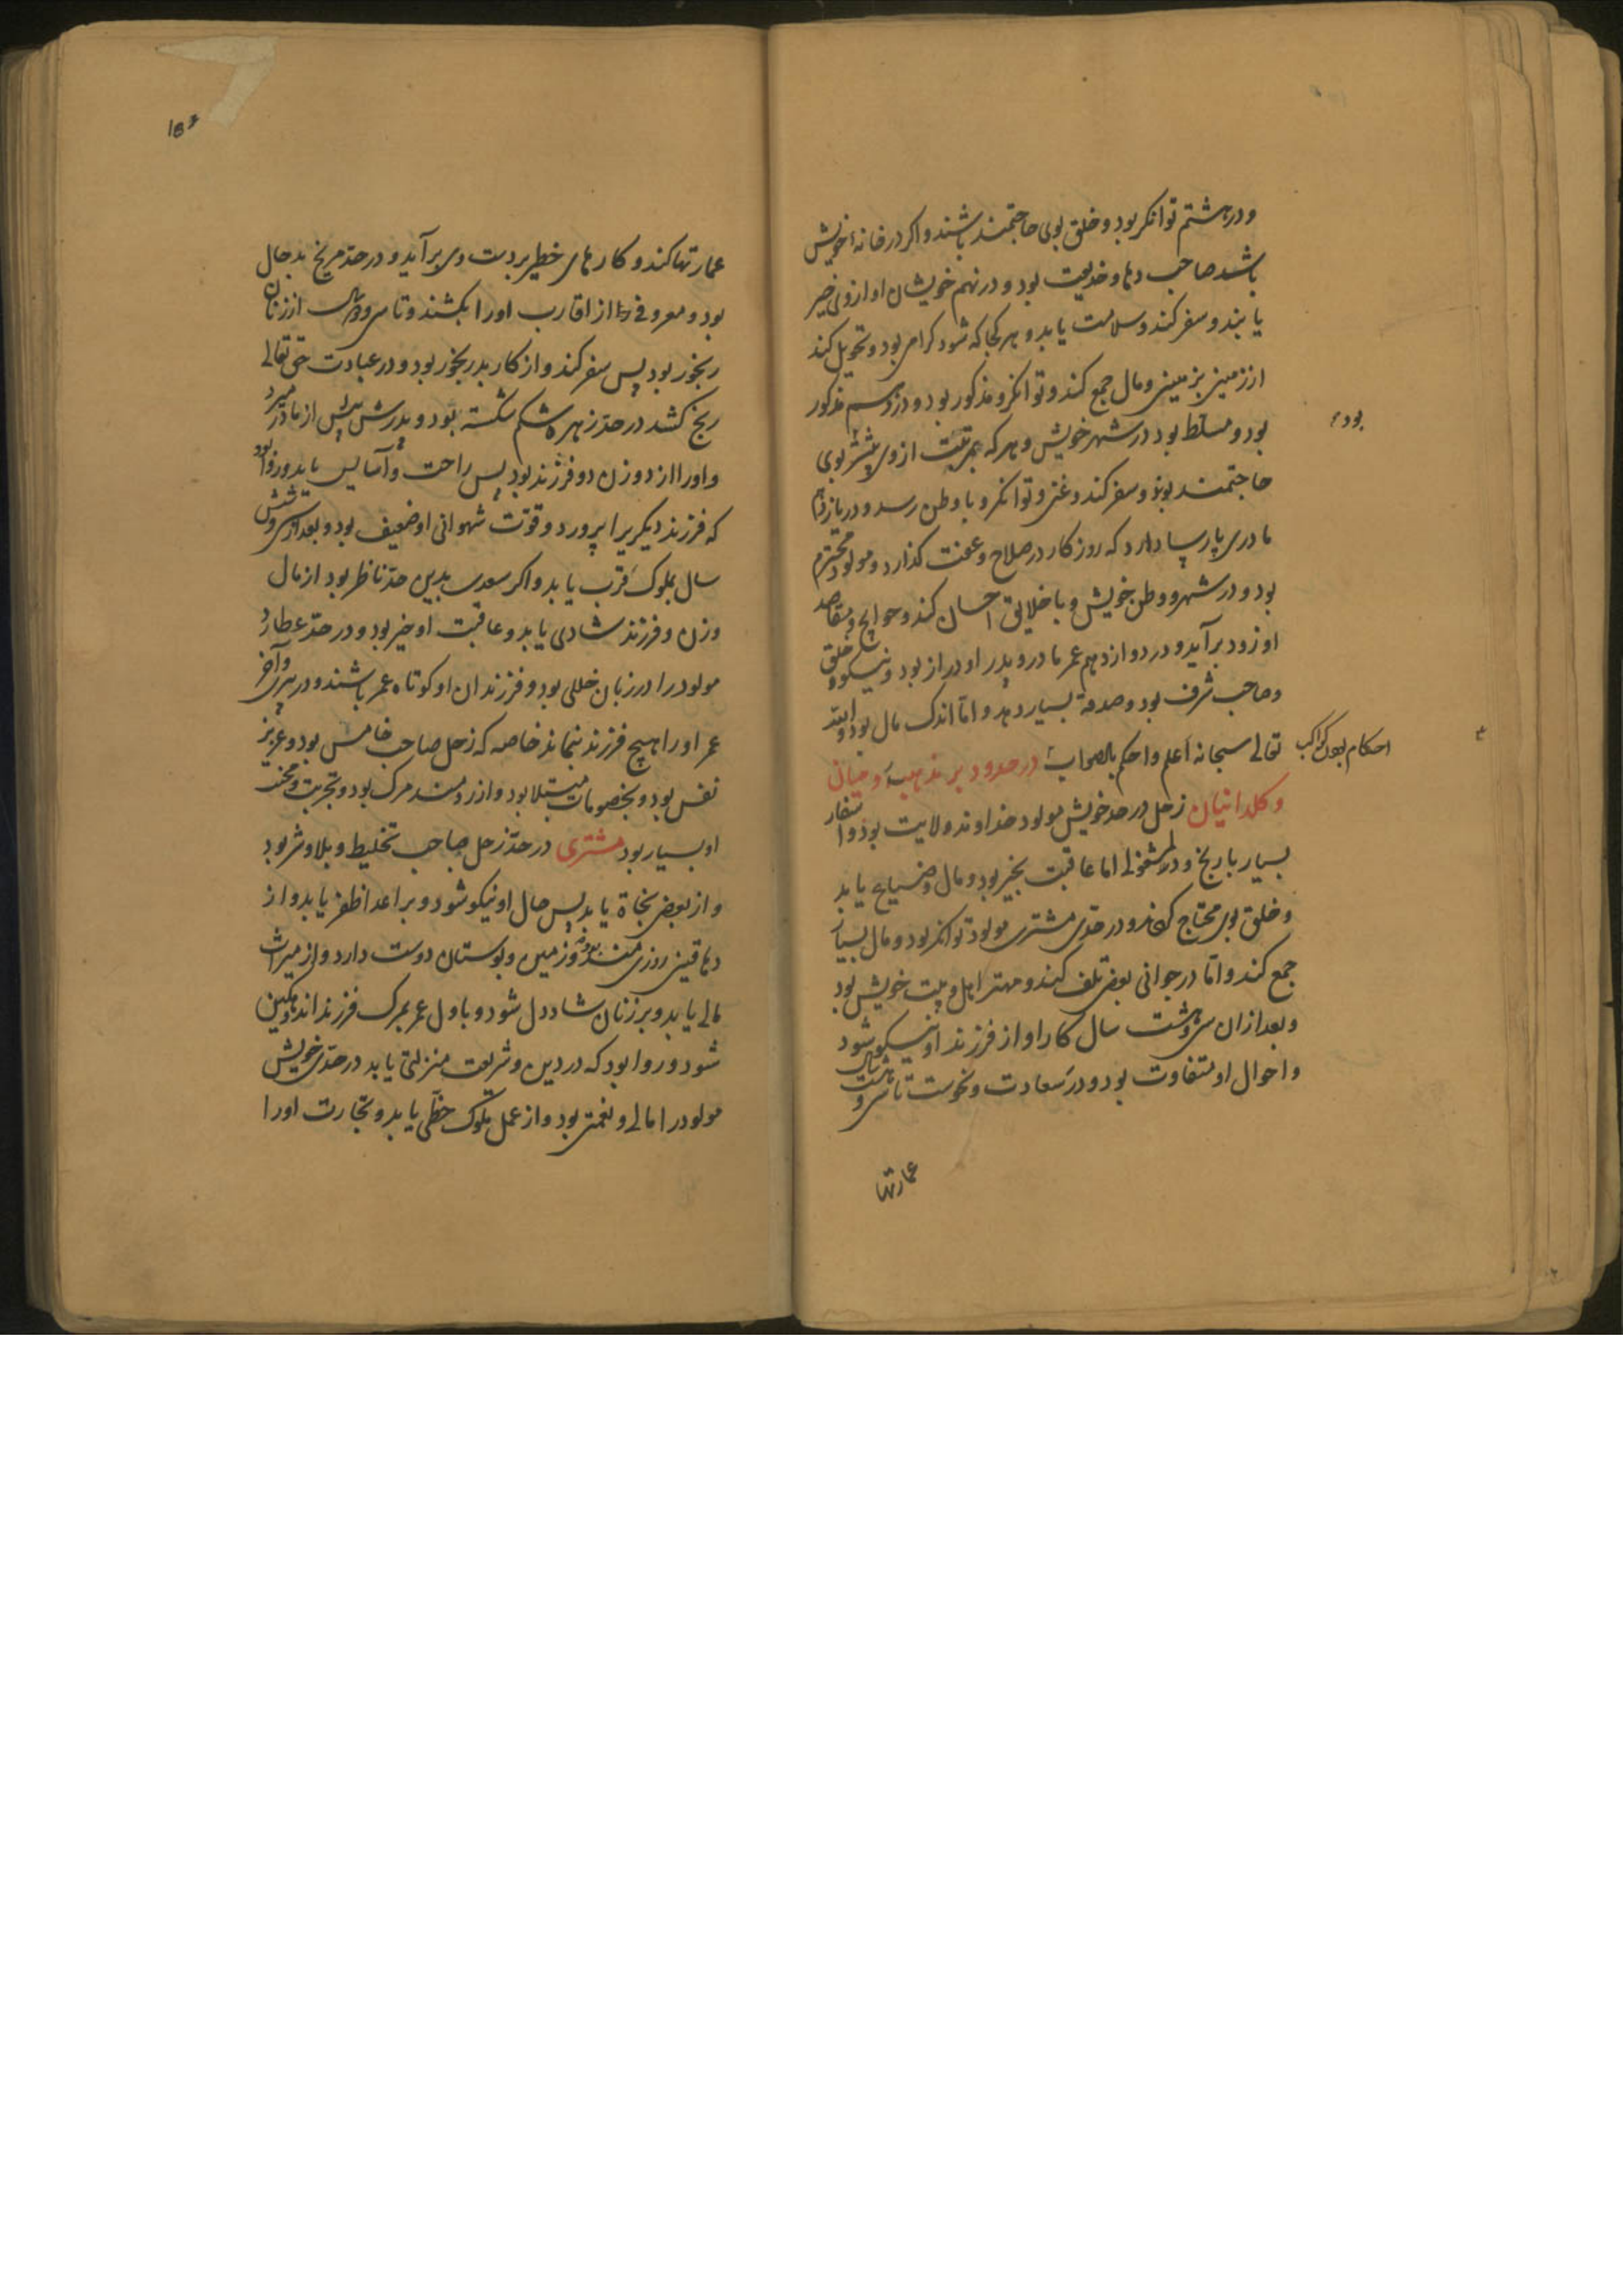 و در هشتم توانکر بود و خلق بوی حاجتمند باشند و اکر در خانهٔ خویش
باشد صاحب دها و خدیعت بود و در نهم خویشان او ازوی خیر
یابند و سفر کند و سلامت یابد و هر کجا که شود کرامی بود و تحویل کند
از زمینی بزمینی و مال جمع کند و توانکر و مذکور بود و در دهم مذکور
بود و مسلط بود در شهر خویش و هر که بمرتبت ازوی بیشتر بوی
بود
حاجتمند بوند و سفر کند و غنی و توانکر و با وطن رسد و در یازدهم
مادری پارسا دارد که روزکار در صلاح و عفت کذارد و مولود محترم
بود و در شهر و وطن خویش و با خلایق احسان کند و حوایج و مقاصد
او زود برآید و در دوازدهم عمر مادر و پدر او دراز بود و نیکو خلق
و صاحب شرف بود و صدقه بسیار دهد و اما اندک مال بود و الله
تعالی سبحانه اعلم و احکم بالصواب در حدود بر مذهب
احکام بعون کواکب
و کلدانیان زحل در حد خویش مولود خداوند ولایت بود و اسفار
بسیار با رنج و دلمشغولی اما عاقبت بخیر بود و مال و ضیاع یابد
و خلق بوی محتاج و در حد مشتری مولود توانکر بود و مال بسیار
جمع کند و اما در جوانی بعضی تلف کند و مهتر اهل و بیت خویش بود
و بعد از ان سی و هشت سال کار او از فرزند او نیکو شود
و احوال او متفاوت بود و در سعادت و نحوست تا سی و هشت سال
عمارتها
عمارتها کند و کارهای خطیر بر دست وی برآید و در حد مریخ بد حال
بود و معروفی را از اقارب او را بکشند و تا سی و دو سال از زنان
رنجور بود پس سفر کند و از کار بد رنجور بود و در عبادت حق تعالی
رنج کشد در حد زهره شکم شکسته بود و پدرش پیش از مادر میرد
و او را از دو زن دو فرزند بود پس راحت و آسایس یابد و روا بود
که فرزند دیکریرا پرورد و قوّت شهوانی او ضعیف بود و بعد از سی و شش
سال بملوک قرب یابد و اکر سعدی بدین حد ناظر بود از مال
و زن و فرزند شادی یابد و عاقبت او خیر بود و در حد عطارد
مولود را در زبان خللی بود و فرزندان او کوتاه عمر باشند و در پیری و آخر
عمر او را هیچ فرزند نماند خاصه که زحل صاحب خامس بود و عزیز
نفس بود و بخصومات مبتلا بود و آرزومند مرک بود و تجربت و محنت
او بسیار بود مشتری در حد زحل صاحب تخلیط و بلا و شر بود
و از بعضی نجاة یابد پس حال او نیکو شود و بر اعدا ظفر یابد و از
دهاقین روزی مند بود و زمین و بوستان دوست دارد و از میراث
مالی یابد و بر زنان شاد دل شود و باول عمر بمرک فرزند اندوهکین
شود و روا بود که در دین و شریعت منزلتی یابد در حد خویش
مولود را مالی و نعمتی بود و از عمل ملوک حظی یابد و تجارت او را